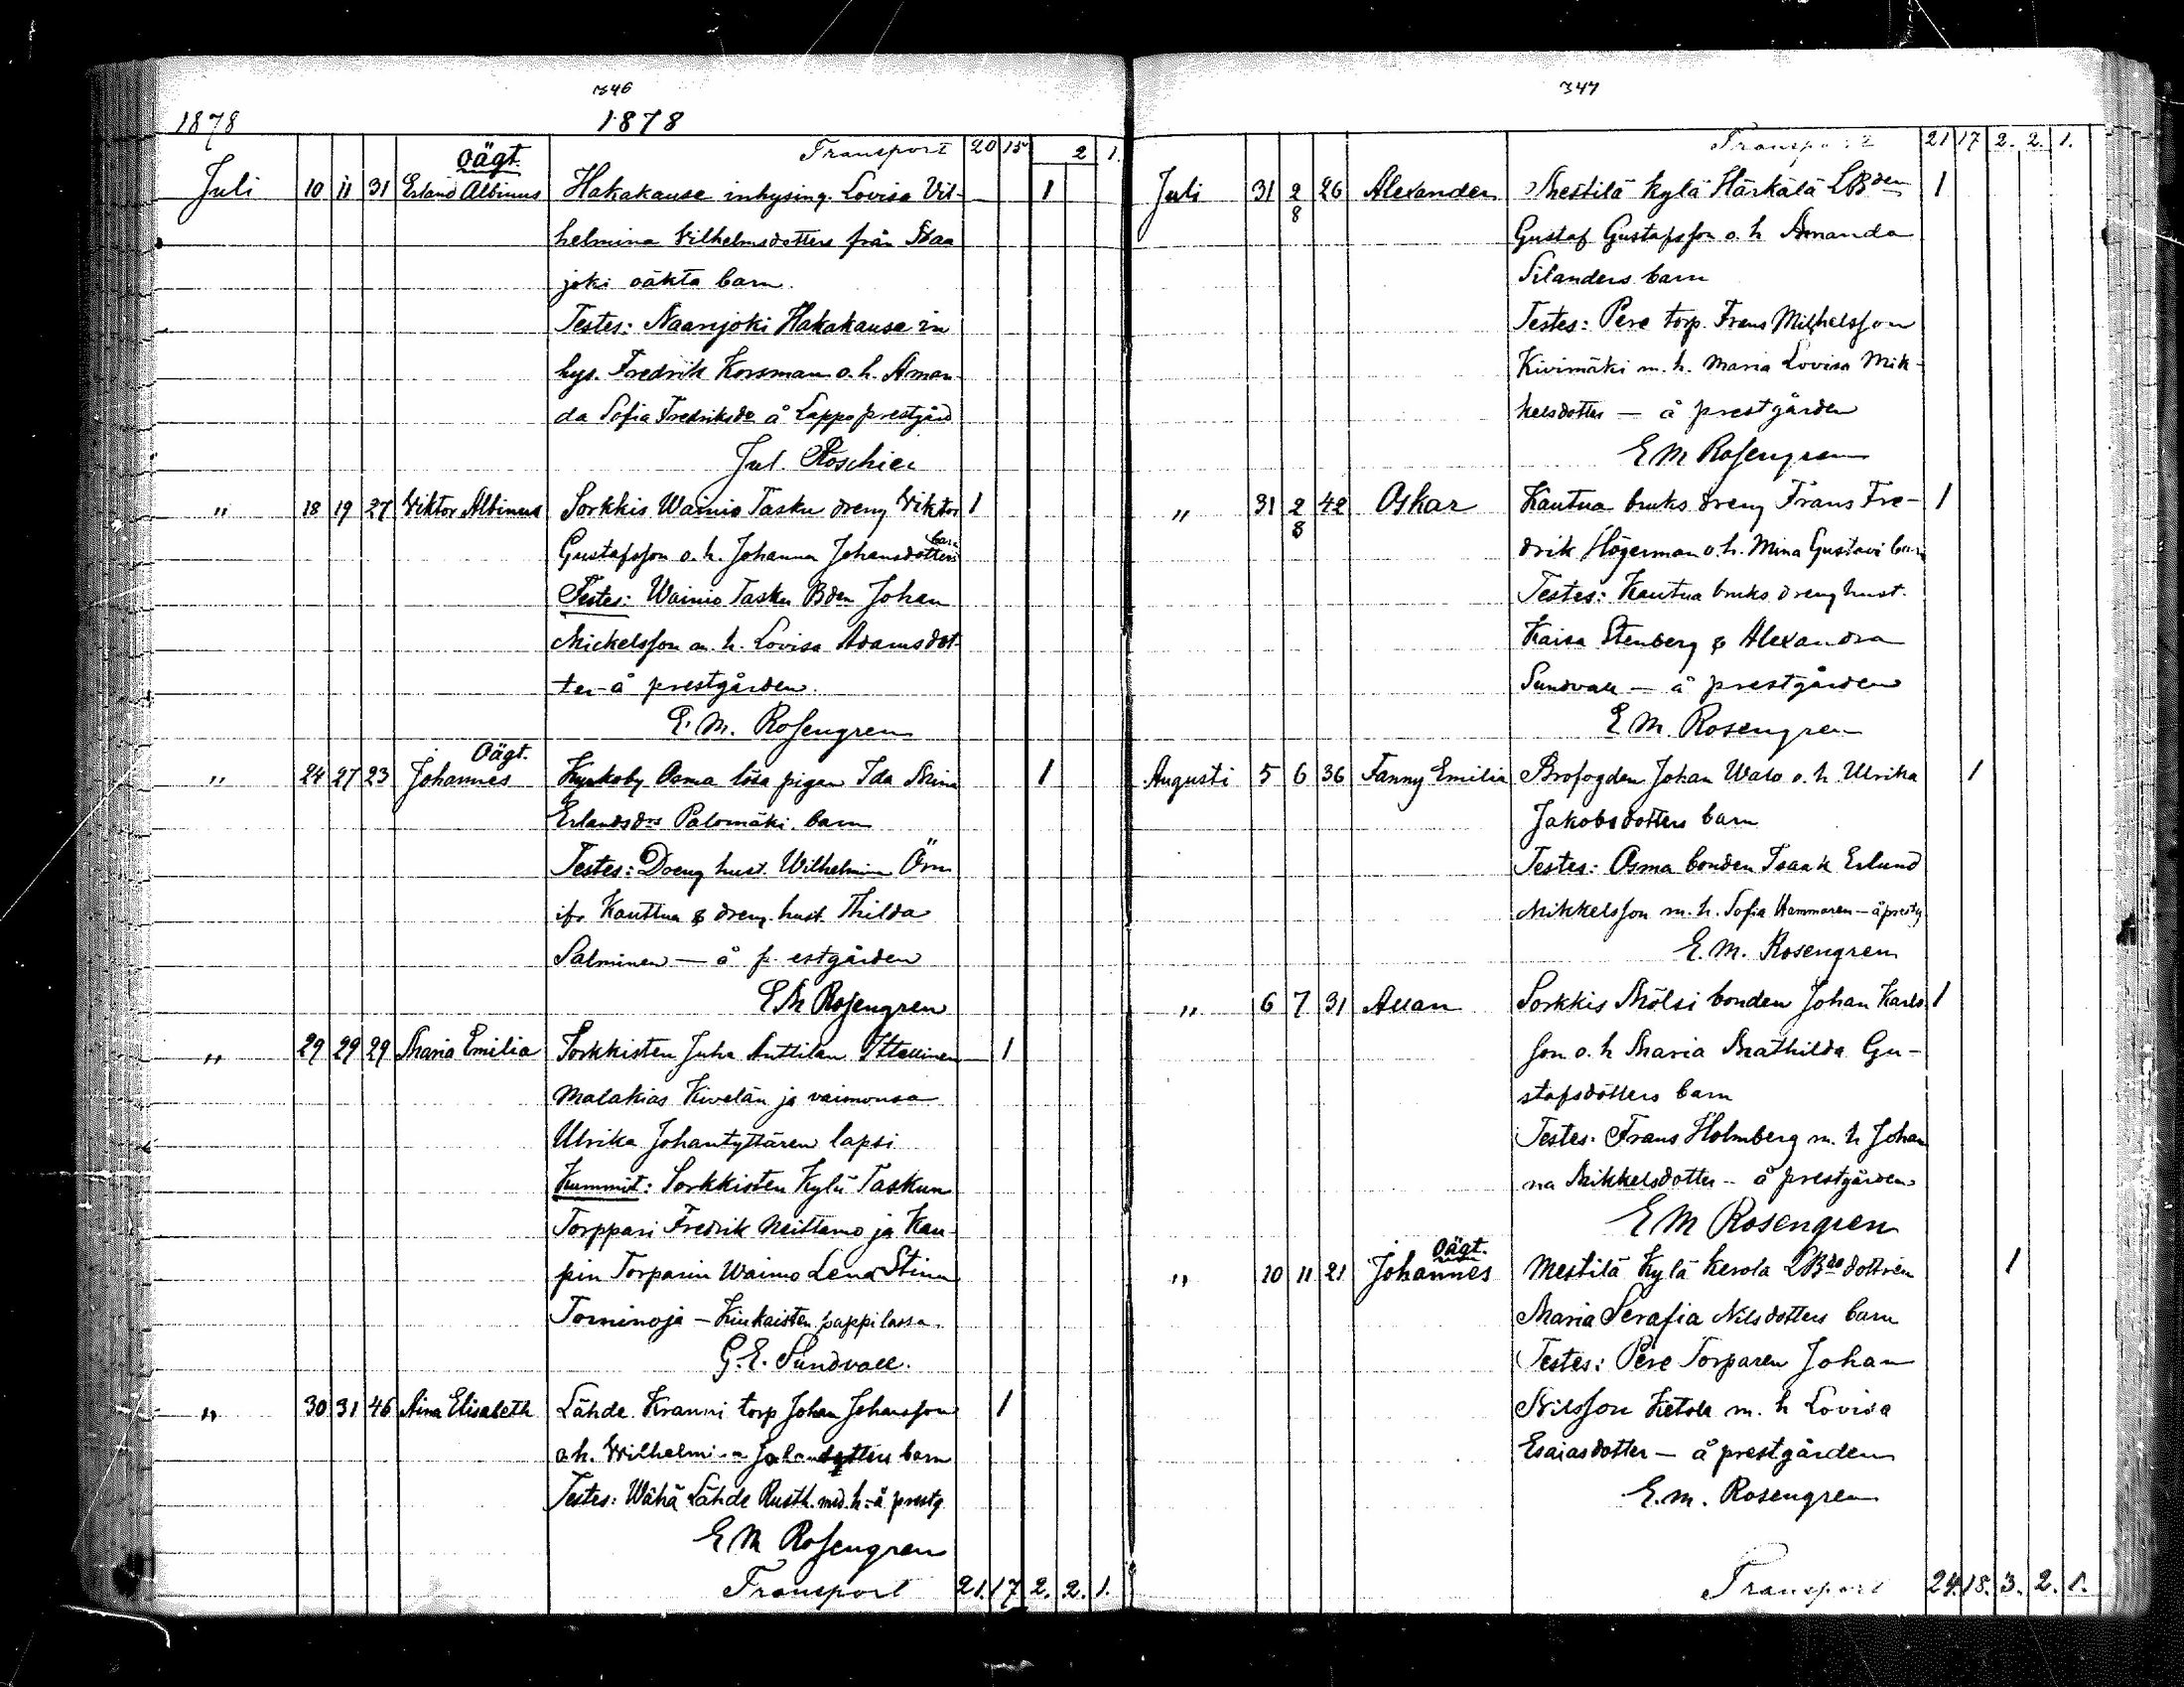 346
1878 1878
Transport 20 15 2 1.
oägt.
Juli 10 11 31 Erland Albinus Hakakause inhysing. Lovisa Vil- 1
helmina Vilhelmsdotters från
joki oäkta barn.
Testes: Naarijoki Hakakause in
hys. Fredrik Korsman o. h. Aman
da Sofia Fredriksdr å Lappo prestgård
Jul. Roschier
" 18 19 27 Viktor Albinus Sorkkis Wainio Tasku dreng Viktor 1
Gustafsson o. h. Johanna Johansdotters barn
Testes: Wainio Tasku Bden Johan
Mickelsson m. h. Lovisa Adamsdot-
ter å prestgården.
E. M. Rosengren
Oägt.
" 24 27 23 Johannes Kyrkoby Osma lösa pigan Ida Mina 1
Erlandsdrs Palomäki barn
Testes: Dreng hust. Wilhelmina Örn
ifr Kauttua & dreng. hust. Thilda
Salminen — å p estgården
E M Rosengren
" 29 29 29 Maria Emilia Sorkkisten Juha Anttilan Itsellinen 1
Malakias Kivelän ja vaimonsa
Ulrika Johantyttären lapsi
Kummit: Sorkkisten Kylä Taskun
Torppari Fredrik Neittamo ja Kau-
pin Torparin Waimo Lena Stina
Torninoja — Kiukaisten pappilassa.
G. E. Sundvall.
" 30 31 46 Aina Elisabeth Lähde Kranni torp Johan Johansson 1
o h. Wilhelmina Johansdotters barn
Testes: Wähä Lähde Rusth. med. h. å prestg.
E M Rosengren
Transport 21. 17 2. 2. 1.
347
Transport 21 17 2. 2. 1.
Juli 31 2/8 26 Alexander Mestilä kylä Härkälä LBden 1
Gustaf Gustafsson o. h Amanda
Silanders barn
Testes: Pere torp. Frans Mikhelsson
Kivimäki m. h. Maria Lovisa Mik-
kelsdotter — å prestgården
E M Rosengren
" 31 2/8 42 Oskar Kautua bruks dreng Frans Fre- 1
drik Högerman o. h. Mina Gustavi barn
Testes: Kautua bruks dreng hust.
Kaisa Stenberg & Alexandra
Sundvall — å prestgården
E M. Rosengren
Augusti 5 6 36 Fanny Emilia Brofogden Johan Walo o. h. Ulrika 1
Jakobsdotters barn
Testes: Osma bonden Isaak Erlund
Mikkelsson m. h. Sofia Hammaren — å prestg
E. M. Rosengren
" 6 7 31 Allan Sorkkis Mölsi bonden Johan Karls- 1
son o. h Maria Mathilda Gu-
stafsdotters barn
Testes: Frans Holmberg m. h Johan
na Mikkelsdotter — å prestgården
E M Rosengren
oägt.
" 10 11 21 Johannes Mestilä Kylä Kerola LBds dottren 1
Maria Serafia Nilsdotters barn
Testes: Pere Torparen Johan
Nilsson Ketola m. h Lovisa
Esaiasdotter — å prestgården
E. M. Rosengren
Transport 24. 18. 3. 2. 1.